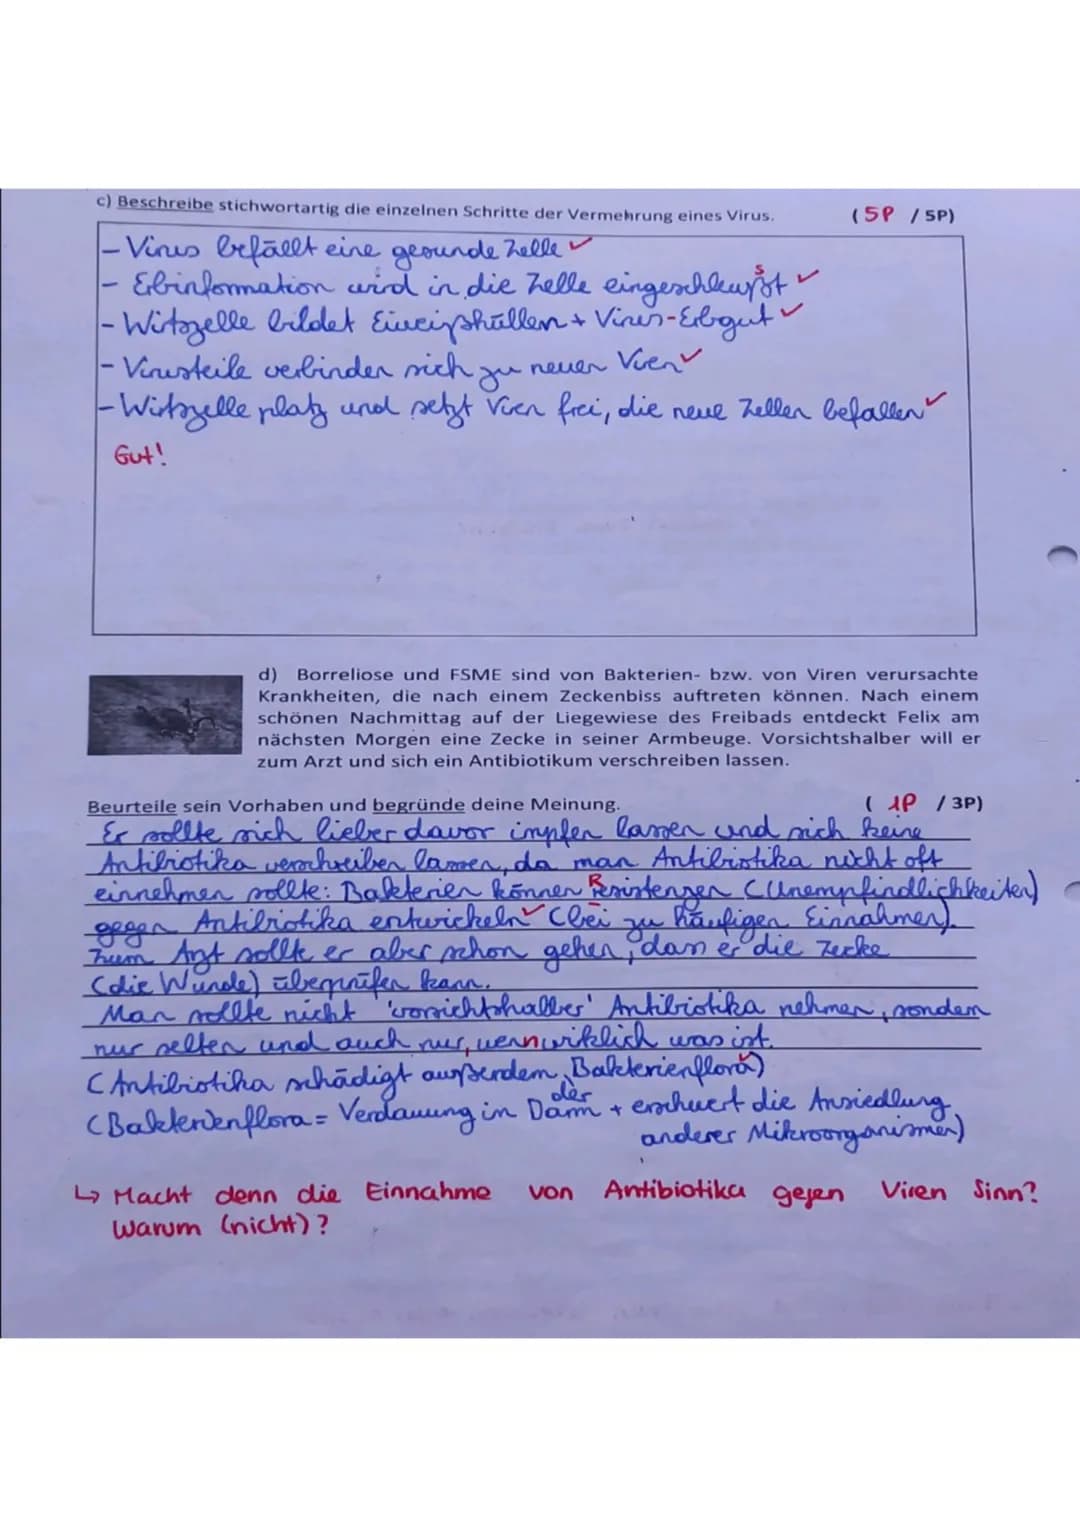 c) Beschreibe stichwortartig die einzelnen Schritte der Vermehrung eines Virus. (5P / 5P)
- Virus befällt eine gesunde Zelle ✓
- Erbinformation wird in die Zelle eingeschleußt ✓
s
- Wirtszelle bildet Eiweißhüllen + Virus-Erbgut ✓
- Virusteile verbinden sich zu neuen Viren ✓
- Wirtszelle platz und setzt Viren frei, die neue Zellen befallen ✓
Gut!
d) Borreliose und FSME sind von Bakterien- bzw. von Viren verursachte
Krankheiten, die nach einem Zeckenbiss auftreten können. Nach einem
schönen Nachmittag auf der Liegewiese des Freibads entdeckt Felix am
nächsten Morgen eine Zecke in seiner Armbeuge. Vorsichtshalber will er
zum Arzt und sich ein Antibiotikum verschreiben lassen.
Beurteile sein Vorhaben und begründe deine Meinung. ( 1P / 3P)
Er sollte sich lieber davor impfen lassen und sich keine
Antibiotika verschreiben lassen, da man Antibiotika nicht oft
einnehmen sollte: Bakterien können Resistenzen (Unempfindlichkeiten)
gegen Antibiotika entwickeln ✓ (bei zu häufigen Einnahmen).
Zum Arzt sollte er aber schon gehen, dass er die Zecke
(die Wunde) überprüfen kann.
Man sollte nicht 'vorsichtshalber' Antibiotika nehmen, sondern
nur selten und auch nur, wenn wirklich was ist.
(Antibiotika schädigt außerdem Bakterienflora ✓)
der
(Bakterienflora = Verdauung in Darm + erschwert die Ansiedlung
anderer Mikroorganismen)
↳ Macht denn die Einnahme von Antibiotika gegen Viren Sinn?
Warum (nicht)?